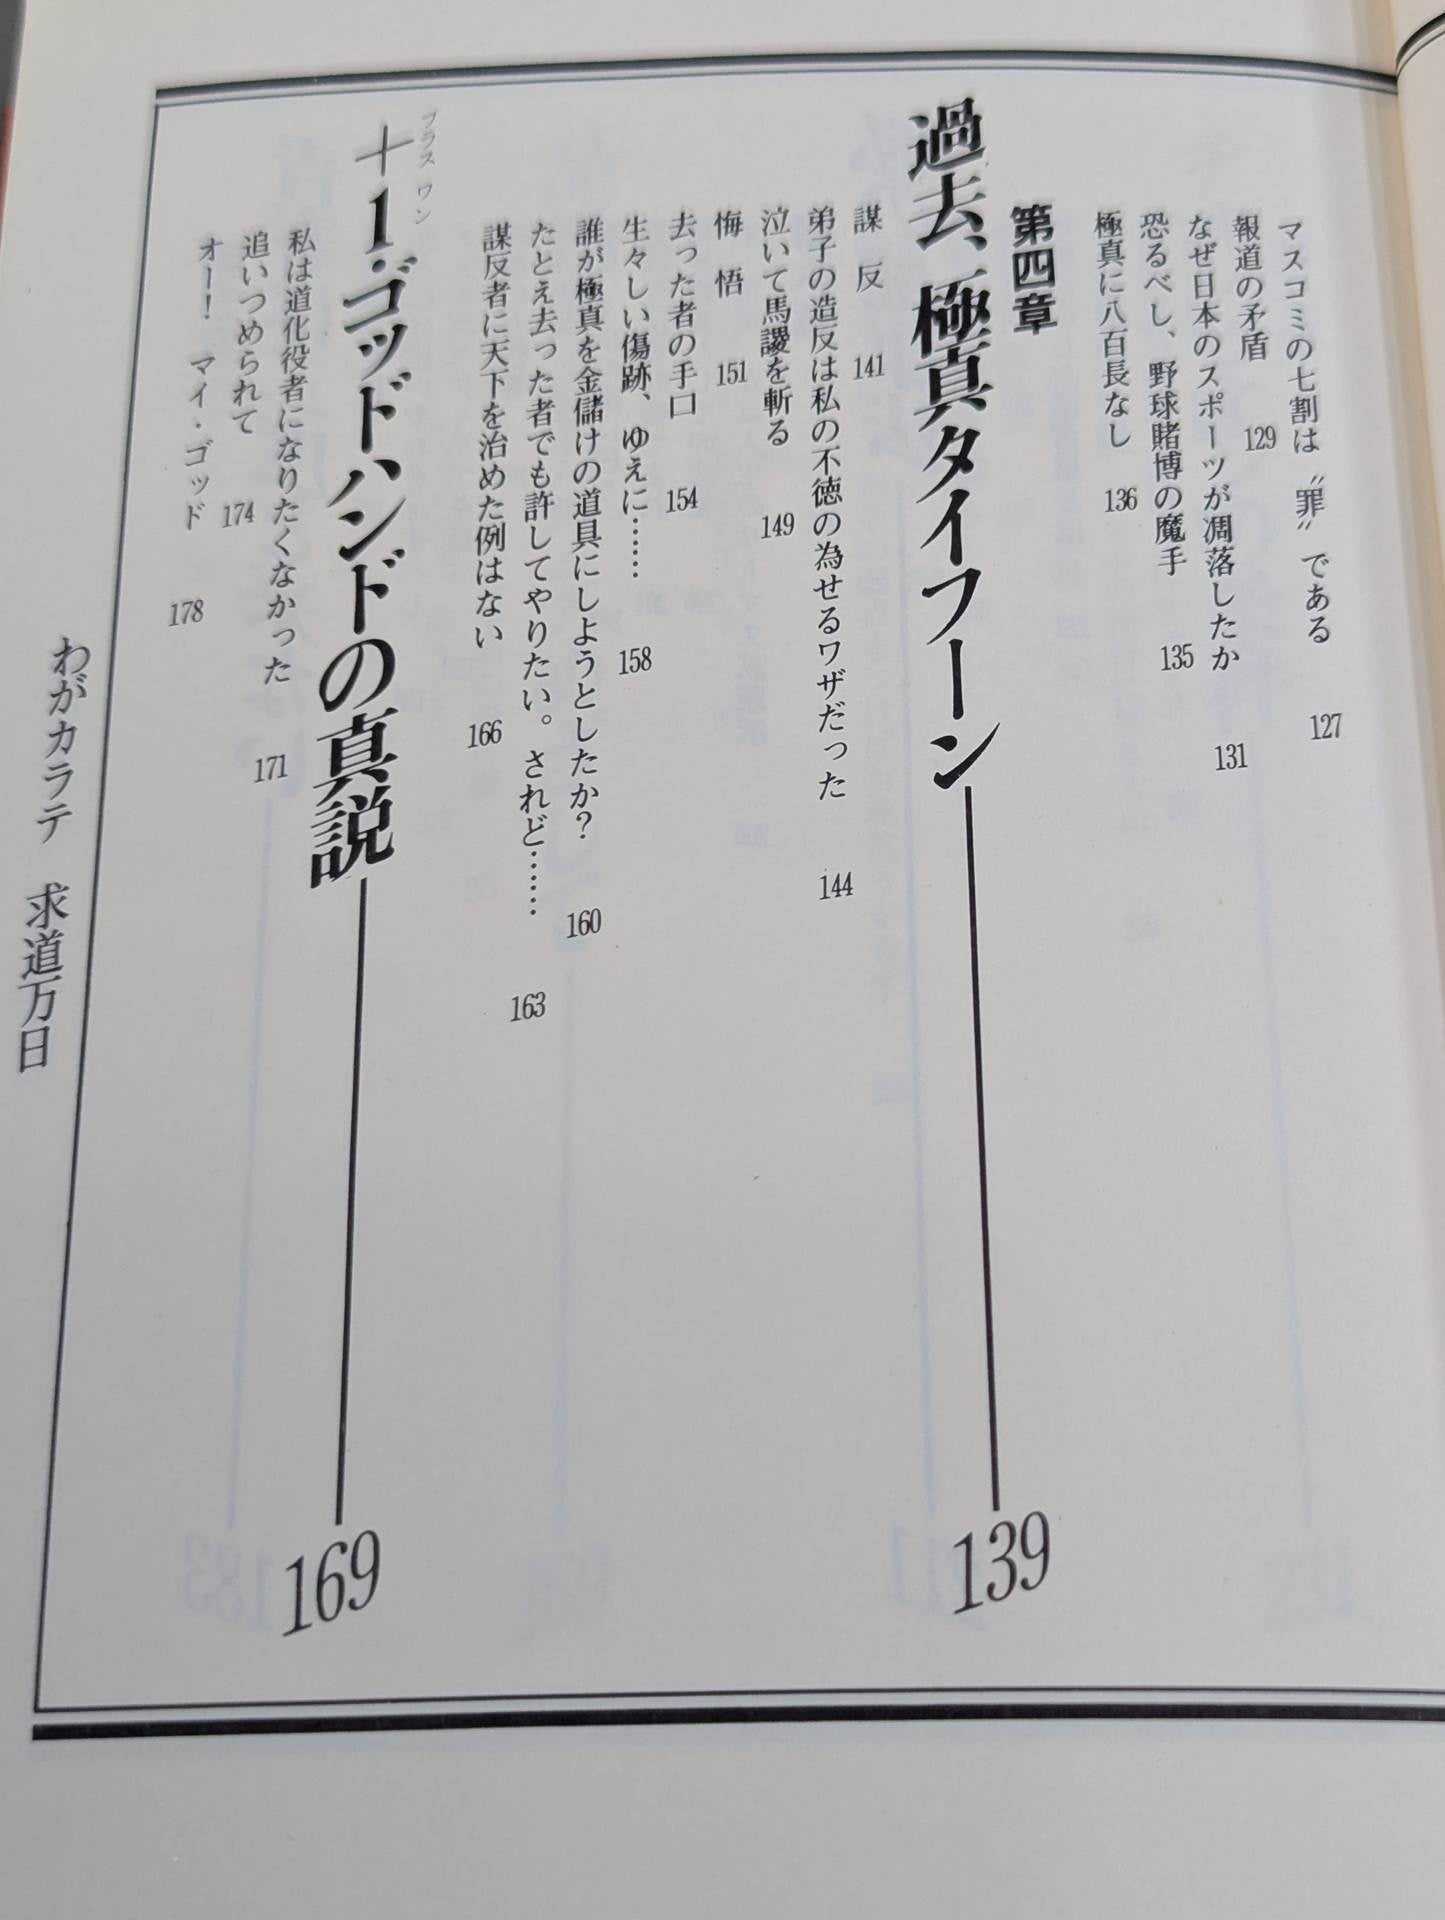 マスコミの七割は〝罪〟である 127
報道の矛盾 129
なぜ日本のスポーツが凋落したか 131
恐るべし、野球賭博の魔手 135
極真に八百長なし 136
第四章
過去、極真タイフーン 139
謀反 141
弟子の造反は私の不徳の為せるワザだった 144
泣いて馬謖を斬る 149
悔悟 151
去った者の手口 154
生々しい傷跡、ゆえに…… 158
誰が極真を金儲けの道具にしようとしたか? 160
たとえ去った者でも許してやりたい。されど…… 163
謀反者に天下を治めた例はない 166
プラス ワン
+1・ゴッドハンドの真説 169
私は道化役者になりたくなかった 171
追いつめられて 174
オー! マイ・ゴッド 178
わがカラテ 求道万日